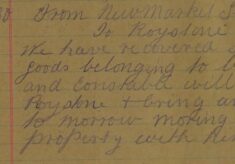 From New Market S
To Roystone
We have recovered
goods belonging to
and Constable will
Roystone & bring
to morrow moring
property with